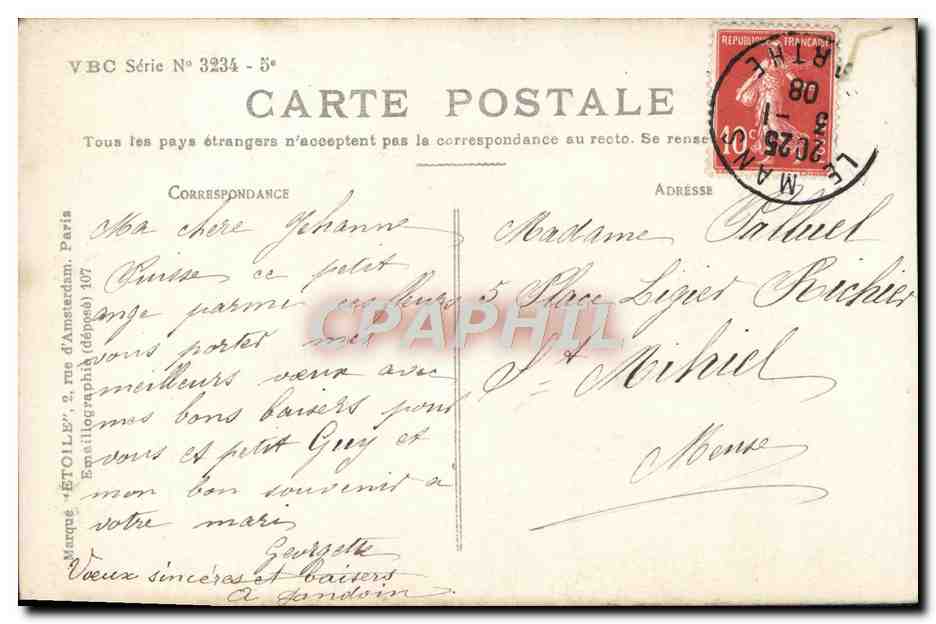 VBC Série Nº 3234 - 5e
CARTE POSTALE
Tous les pays étrangers n'acceptent pas la correspondance au recto. Se rense
REPUBLIQUE FRANÇAISE
10
LE MANS
RTHE
2025
5 -1
08
CORRESPONDANCE
ADRESSE
Ma chere Jehanne
Puisse ce petit
ange parmi ces fleurs
vous porter mes
meilleurs vœux avec
mes bons baisers pour
vous et petit Guy et
mon bon souvenir a
votre mari
Georgette
Vœux sincéres et baisers
Madame Palluel
5 Place Ligier Richier
St Mihiel
Meuse
Marque "ETOILE", 2, rue d'Amsterdam. Paris
Emaillographie (déposé) 107
CPAPHIL